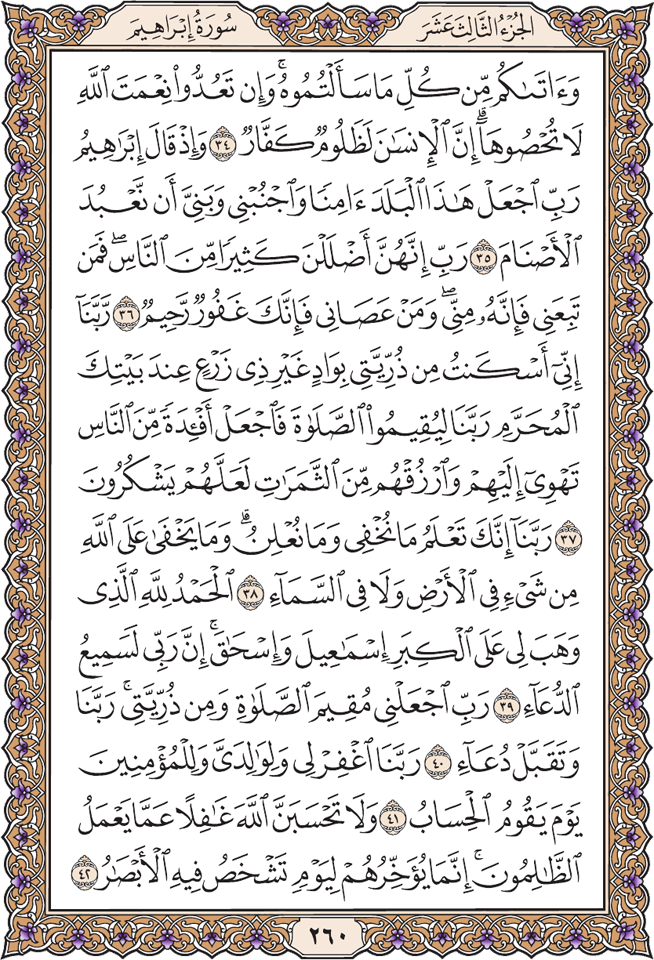 الجزء الثالث عشر
سورة إبراهيم
وَءَاتَىٰكُم مِّن كُلِّ مَا سَأَلْتُمُوهُۚ وَإِن تَعُدُّوا۟ نِعْمَتَ ٱللَّهِ
لَا تُحْصُوهَآۗ إِنَّ ٱلْإِنسَٰنَ لَظَلُومٌ كَفَّارٌ ٣٤ وَإِذْ قَالَ إِبْرَٰهِيمُ
رَبِّ ٱجْعَلْ هَٰذَا ٱلْبَلَدَ ءَامِنًا وَٱجْنُبْنِى وَبَنِىَّ أَن نَّعْبُدَ
ٱلْأَصْنَامَ ٣٥ رَبِّ إِنَّهُنَّ أَضْلَلْنَ كَثِيرًا مِّنَ ٱلنَّاسِۖ فَمَن
تَبِعَنِى فَإِنَّهُۥ مِنِّىۖ وَمَنْ عَصَانِى فَإِنَّكَ غَفُورٌ رَّحِيمٌ ٣٦ رَّبَّنَآ
إِنِّىٓ أَسْكَنتُ مِن ذُرِّيَّتِى بِوَادٍ غَيْرِ ذِى زَرْعٍ عِندَ بَيْتِكَ
ٱلْمُحَرَّمِ رَبَّنَا لِيُقِيمُوا۟ ٱلصَّلَوٰةَ فَٱجْعَلْ أَفْـِٔدَةً مِّنَ ٱلنَّاسِ
تَهْوِىٓ إِلَيْهِمْ وَٱرْزُقْهُم مِّنَ ٱلثَّمَرَٰتِ لَعَلَّهُمْ يَشْكُرُونَ
٣٧ رَبَّنَآ إِنَّكَ تَعْلَمُ مَا نُخْفِى وَمَا نُعْلِنُۗ وَمَا يَخْفَىٰ عَلَى ٱللَّهِ
مِن شَىْءٍ فِى ٱلْأَرْضِ وَلَا فِى ٱلسَّمَآءِ ٣٨ ٱلْحَمْدُ لِلَّهِ ٱلَّذِى
وَهَبَ لِى عَلَى ٱلْكِبَرِ إِسْمَٰعِيلَ وَإِسْحَٰقَۚ إِنَّ رَبِّى لَسَمِيعُ
ٱلدُّعَآءِ ٣٩ رَبِّ ٱجْعَلْنِى مُقِيمَ ٱلصَّلَوٰةِ وَمِن ذُرِّيَّتِىۚ رَبَّنَا
وَتَقَبَّلْ دُعَآءِ ٤٠ رَبَّنَا ٱغْفِرْ لِى وَلِوَٰلِدَىَّ وَلِلْمُؤْمِنِينَ
يَوْمَ يَقُومُ ٱلْحِسَابُ ٤١ وَلَا تَحْسَبَنَّ ٱللَّهَ غَٰفِلًا عَمَّا يَعْمَلُ
ٱلظَّٰلِمُونَۚ إِنَّمَا يُؤَخِّرُهُمْ لِيَوْمٍ تَشْخَصُ فِيهِ ٱلْأَبْصَٰرُ ٤٢
٢٦٠